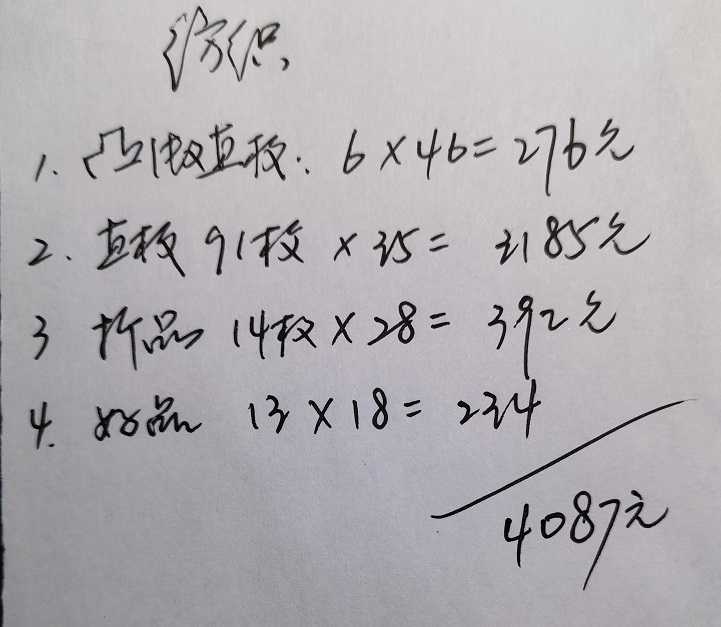 纺织
1. 凸版直板: 6×46=276元
2. 直板 91枚 ×35= 3185元
3 折品 14枚×28= 392元
4. 好品 13×18= 234
4087元